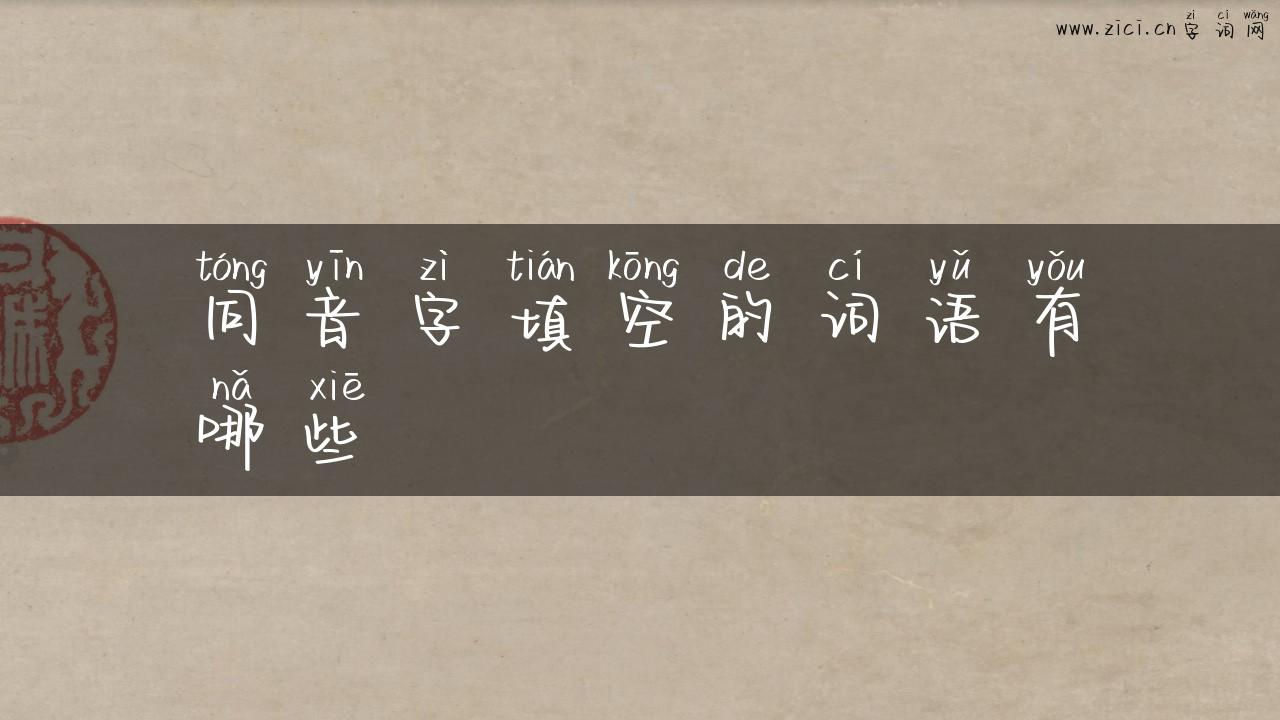 zì cí wǎng
www.zici.cn 字词网
tóng yīn zì tián kōng de cí yǔ yǒu
同音字填空的词语有
nǎ xiē
哪些